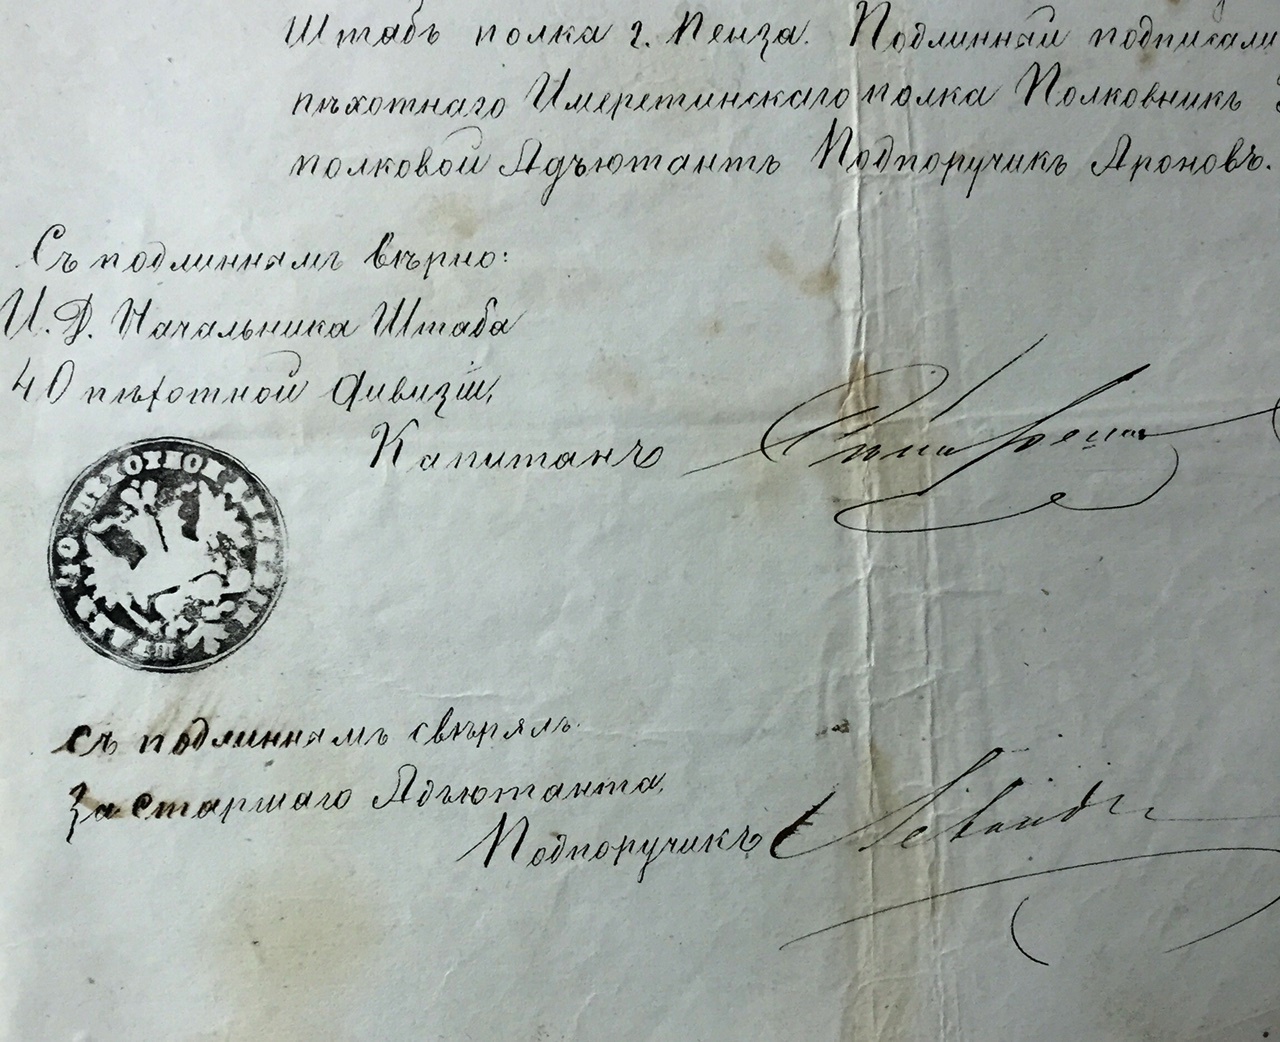 Штабъ полка г. Пенза. Подлинный подписали
пѣхотнаго Имеретинскаго полка Полковникъ
полковой Адъютантъ Подпоручикъ Ароновъ.
Съ подлиннымъ вѣрно:
И. Д. Начальника Штаба
40 пѣхотной дивизіи,
Капитанъ
40 ПѢХОТНОЙ ДИВИЗІИ
Съ подлиннымъ свѣрялъ
За Старшаго Адъютанта,
Подпоручикъ